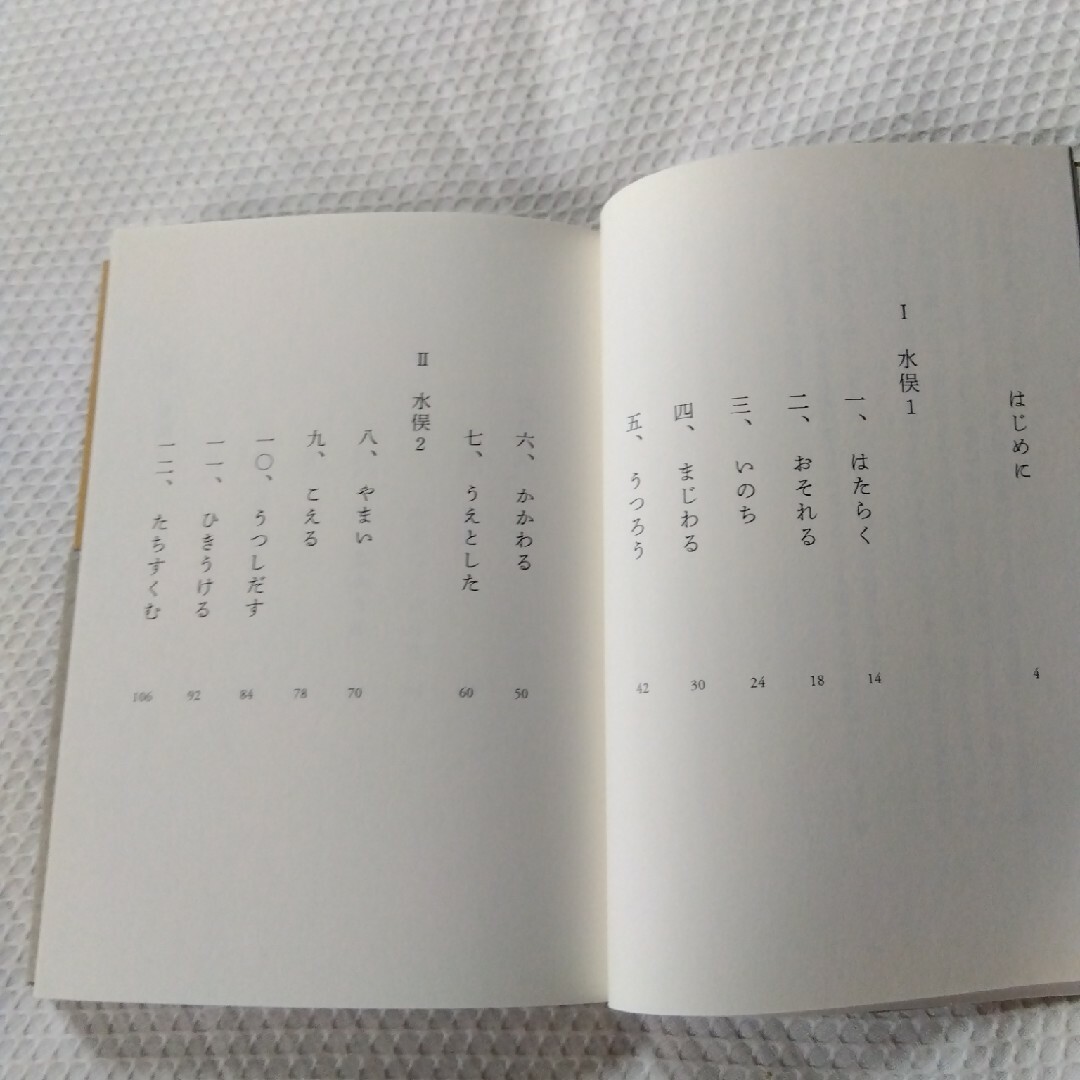 はじめに 4
Ⅰ 水俣1
一、はたらく 14
二、おそれる 18
三、いのち 24
四、まじわる 30
五、うつろう 42
六、かかわる 50
七、うえとした 60
Ⅱ 水俣2
八、やまい 70
九、こえる 78
一〇、うつしだす 84
一一、ひきうける 92
一二、たちすくむ 106